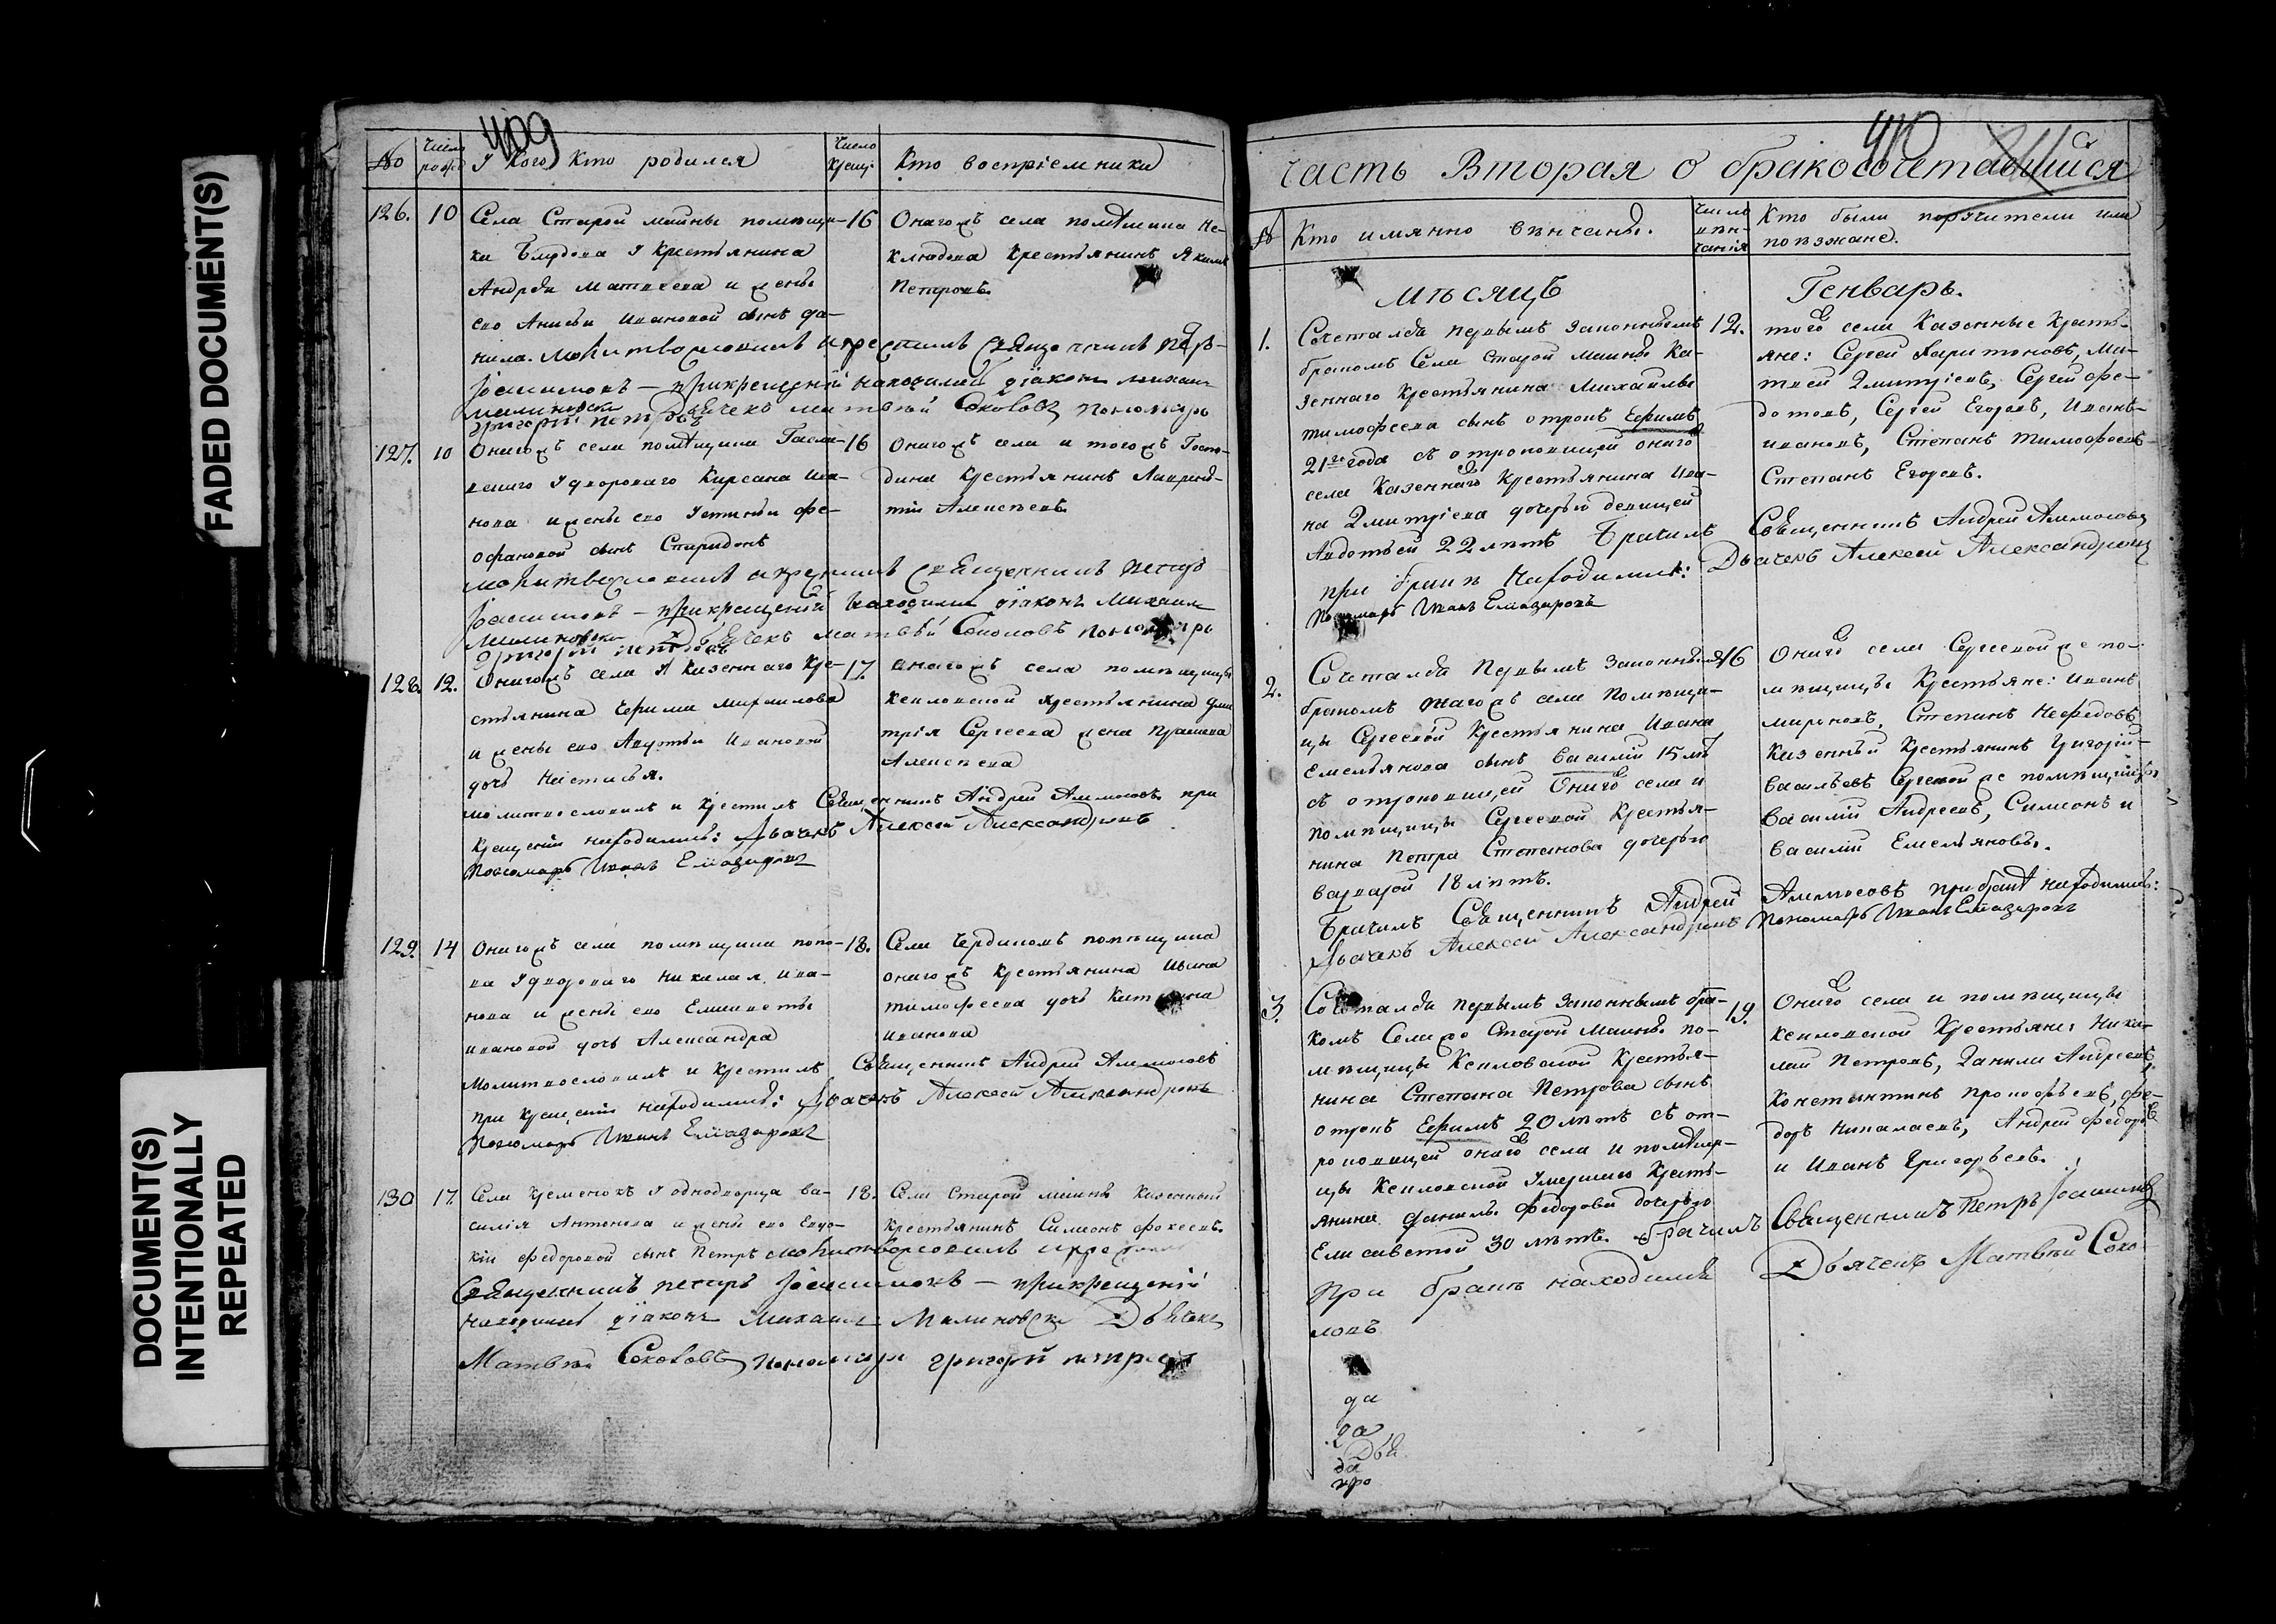 FADED DOCUMENT(S)
DOCUMENT(S)
INTENTIONALLY
REPEATED
409
№
Число рожд
У Кого Кто родился
Число крещ
Кто воспріемники
126. 10
Села Старой майны помѣщи-
ка Блудова У Крестьянина
Андрея Матвѣева и жены
ево Анисьи Ивановой сынъ Да-
нила. молитвословилъ и крестилъ священникъ Петръ
Іоакимовъ — при крещеніи находились діаконъ Михаил
Малиновски Дьячекъ матвѣй Соколовъ пономарь
григорій петровъ
16
Онагожъ села помѣщика Не-
клюдова Крестьянинъ Якимъ
Петровъ
127. 10
Онагожъ села помѣщика
У двороваго Кирсана Ива-
нова и жены ево Устиньи Фе-
офановой сынъ Спиридонъ
молитвословилъ и крестилъ священникъ петръ
Іоакимовъ — при крещеніи находились діаконъ Михаил
Малиновски Дьячекъ матвѣй Соколовъ пономарь
григорій петровъ
16
Онагожъ села и тогожъ Госпо-
дина Крестьянинъ Лаврен-
тій Алексѣевъ
128. 12.
Онагожъ села У Казеннаго Кре-
стьянина Ефима Михаилова
и жены ево Авдотьи Ивановой
дочь Настасья.
молитвословилъ и крестилъ Священникъ Андрей Аммосовъ при
крещеніи находились: Дьячекъ Алексей Александровъ
Пономарь Иванъ Елиазаровъ
17.
Онагожъ села помѣщицы
Крестьянина Дми-
трія Сергеева жена
Алексѣева
129. 14
Онагожъ села помѣщика попо-
ва У двороваго Николая Ива-
нова и жены ево Елисаветы
Ивановой дочь Александра
Молитвословилъ и Крестилъ Священникъ Андрей Аммосовъ
при крещеніи находились: Дьячекъ Алексей Александровъ
Пономарь Иванъ Елиазаровъ
18.
Села помѣщика
онагожъ Крестьянина Ивана
тимофеева дочь Катерина
Иванова
130 17.
Села Кременокъ У однодворца Ва-
силія Антонова и жены ево Евдо-
кіи Федоровой сынъ Петръ молитвословилъ и крестилъ
Священникъ петръ Іоакимовъ — при крещеніи
находились діаконъ Михаил Малиновски Дьячекъ
Матвѣй Соколовъ пономарь григорій петровъ
18.
Села Старой майны Казенный
Крестьянинъ Симионъ
410
Часть Вторая о бракосочетавшийся
№
Кто имянно вѣнчаны.
Число вѣн-
чанія
Кто были поручители или
поѣзжане.
мѣсяцъ Генварь.
1.
Сочетался первымъ законнымъ
бракомъ Села Старой майны Ка-
зеннаго Крестьянина Михайлы
тимофеева сынъ отрокъ Ефимъ
21го года съ отроковицей онаго
села Казеннаго Крестьянина Ива-
на Дмитріева дочерью девицей
Авдотьей 22 лѣтъ Брачилъ Священникъ Андрей Аммосовъ
при бракѣ Находились: Дьячекъ Алексей Александровъ
Пономарь Иванъ Елиазаровъ
12.
того села Казенные Кресть-
яне: Сергей Харитоновъ, Ма-
твей Дмитріевъ, Сергей Фе-
дотовъ, Сергей Егоровъ, Иванъ
ивановъ, Степанъ Тимофеевъ
Степанъ Егоровъ.
2.
Сочетался Первымъ Законнымъ
бракомъ тагожъ села Помѣщи-
цы Сергевой Крестьянина Ивана
Емельянова сынъ Василий 15 лѣт
съ отроковицей Онаго села и
помѣщицы Сергевой Крестья-
нина Петра Степанова дочерью
варварой 18 лѣтъ.
Брачилъ Священникъ Андрей Аммосовъ при бракѣ находились:
Дьячекъ Алексей Александровъ Пономарь Иванъ Елиазаровъ
16
Онаго села Сергевой же по-
мѣщицы Крестьяне: Иванъ
мироновъ, Степанъ Нефедовъ
Казенный Крестьянинъ Григорій
Васильевъ Сергевой же помѣщицы
Василій Андреевъ, Симионъ и
Василій Емельяновы.
3.
Сочетался первымъ Законнымъ бра-
комъ Села Старой Майны по-
мѣщицы Крестья-
нина Степана Петрова сынъ
отрокъ Ефимъ 20 лѣтъ съ от-
роковицей онаго села и помѣщи-
цы Умершаго Кресть-
янина Данилы Федорова дочерью
Елисаветой 30 лѣтъ. брачилъ Священникъ Петръ Іоакимовъ
При бракѣ находился Дьячекъ Матвѣй Соко-
ловъ
19.
Онаго села и помѣщицы
Крестьяне: Нико-
лай Петровъ, Данила Андреевъ,
Константинъ Прокофьевъ, Фе-
доръ Николаевъ, Андрей Федоровъ
и Иванъ Григорьевъ.
да
да
Дья
да